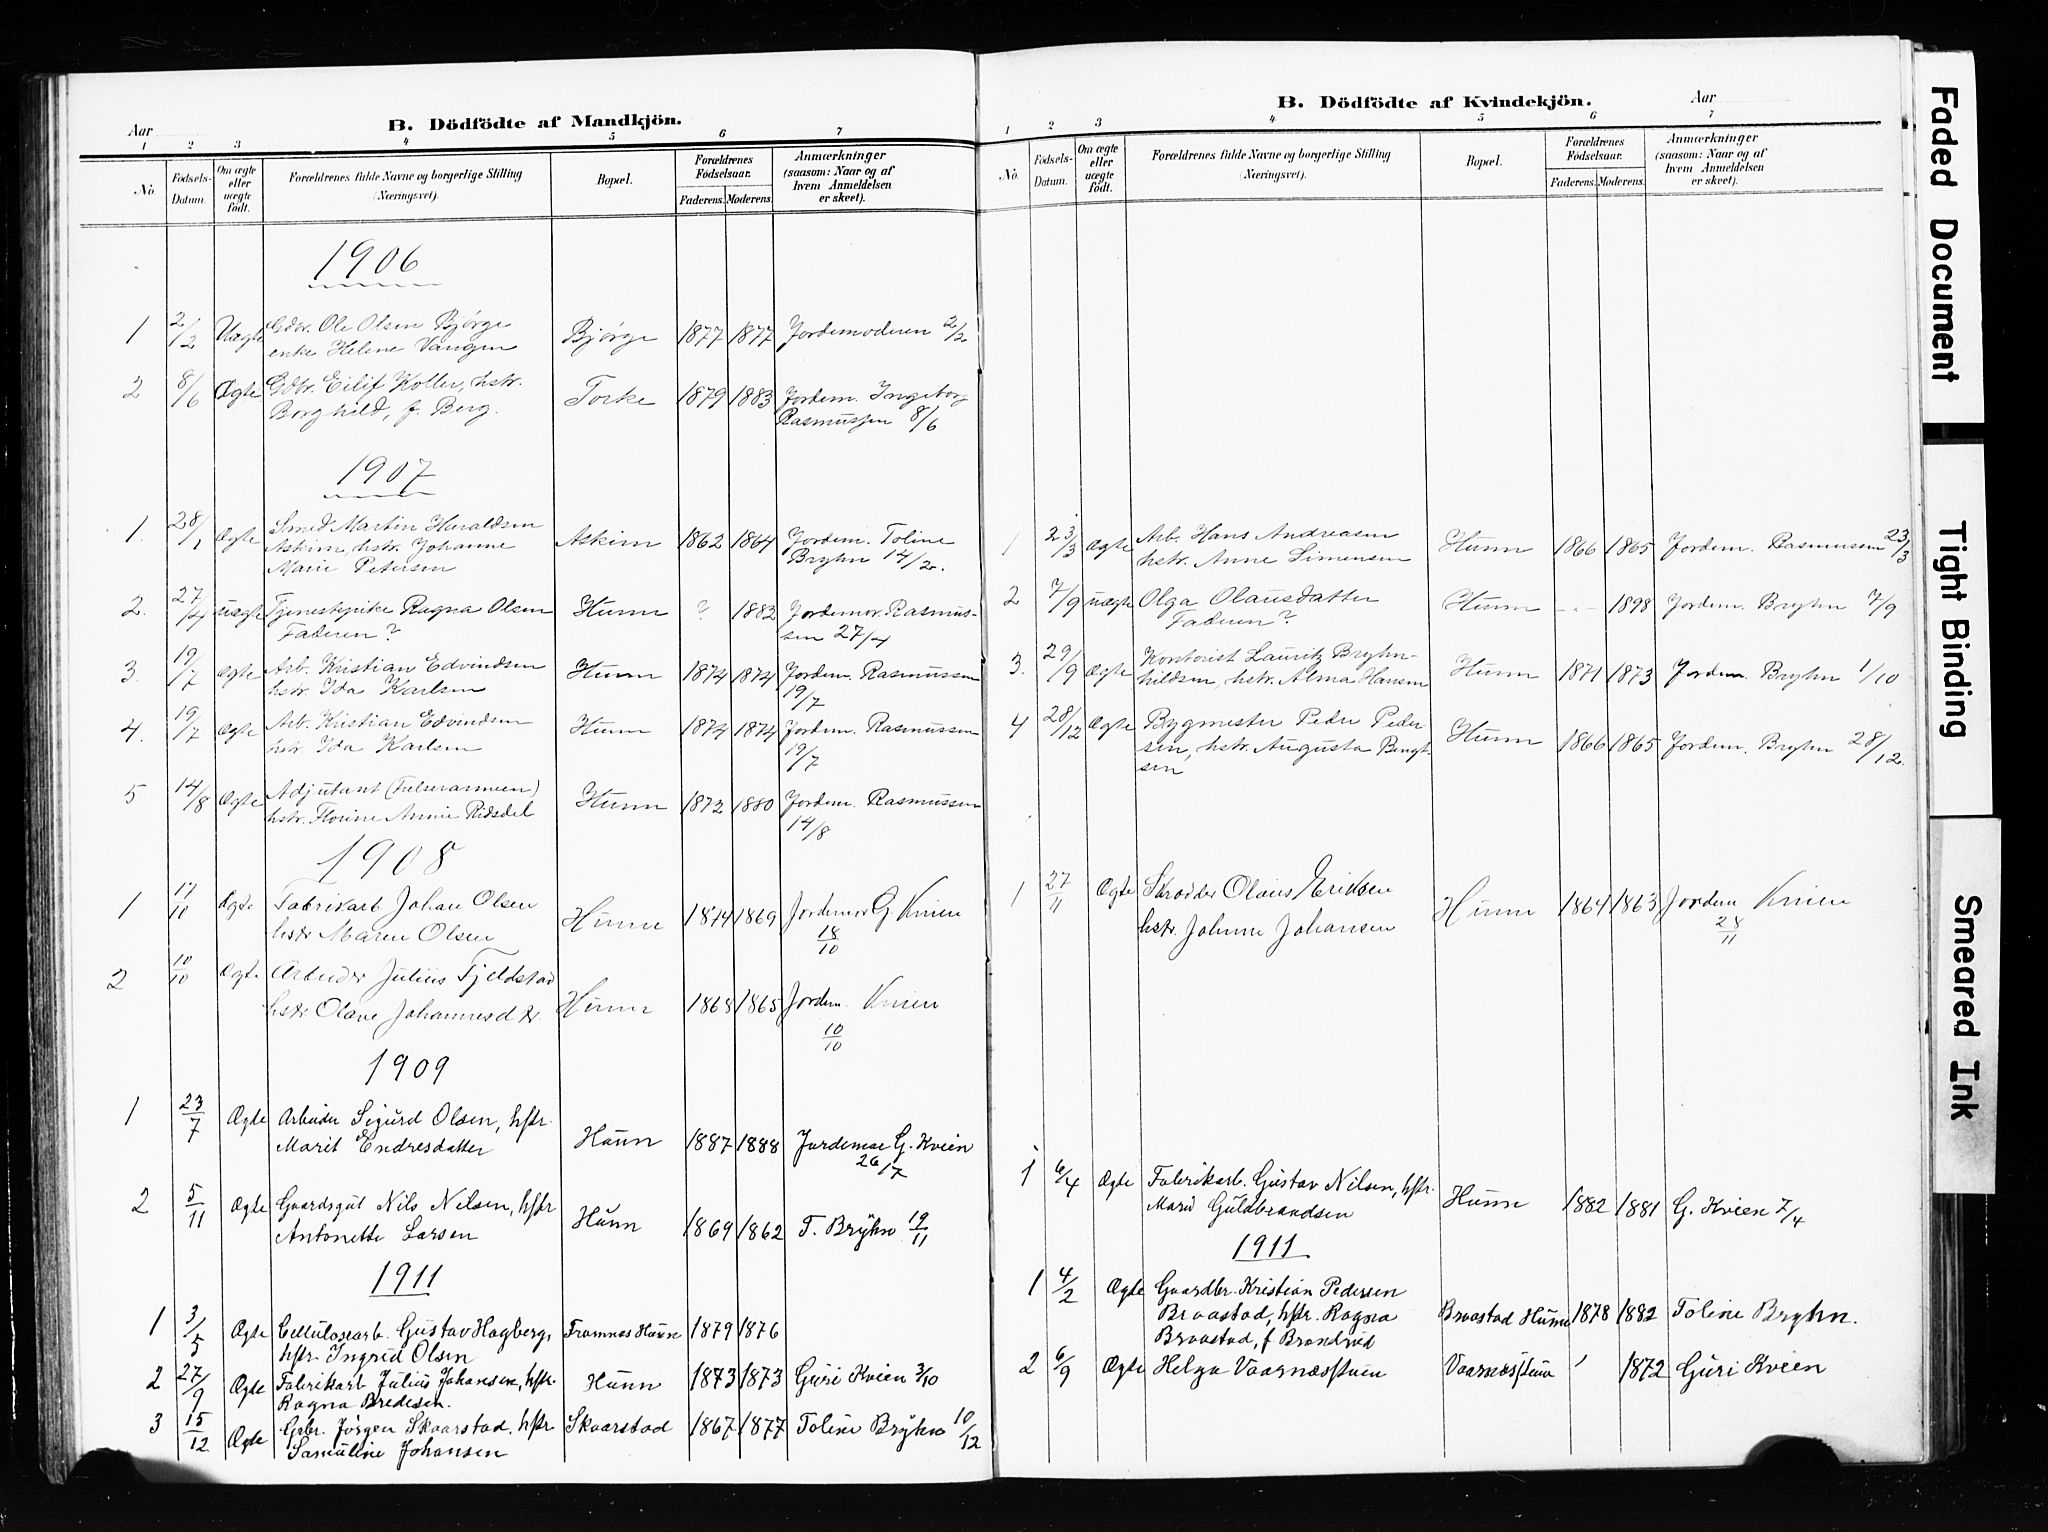 Aar
B. Dödfödte af Mandkjön.
1 2 3 4 5 6 7
No. Födsels-Datum. Om ægte eller uægte födt. Forældrenes fulde Navne og borgerlige Stilling (Næringsvei). Bopæl. Forældrenes Födselsaar. Faderens. Moderens. Anmærkninger (saasom: Naar og af hvem Anmeldelsen er skeet).
1906
1 2/2 Uægte Gdbr. Ole Olsen Bjørge Bjørge 1877 1877 Jordemoderen 2/2
enke Helene Vangen
2 8/6 Ægte Gdbr. Eilif Koller, hstr. Torke 1879 1883 Jordem. Ingeborg
Borghild, f. Berg. Rasmussen 8/6
1907
1. 28/1 Ægte Smed Martin Haraldsen Askim 1862 1864 Jordem. Toline
Askim, hstr. Johanne Bryhn 14/2.
Marie Petersen
2. 27/4 uægte Tjenestepike Ragna Olsen Hunn ? 1882 Jordemor. Rasmus-
Faderen? sen 27/4
3. 19/7 Ægte Arb. Kristian Edvindsen Hunn 1874 1874 Jordem. Rasmussen
hstr. Ida Karlsen 19/7
4. 19/7 Ægte Arb. Kristian Edvindsen Hunn 1874 1874 Jordem. Rasmussen
hstr. Ida Karlsen 19/7
5 14/8 Ægte Adjutant (Frelserarmeen) Hunn 1872 1880 Jordem. Rasmussen
hstr. Florine Annie Ridsdel 14/8
1908
1 17/10 Ægte Fabrikarb Johan Olsen Hunn 1874 1869 Jordemor G. Kvien
hstr Maren Olsen 18/10
2 10/10 Ægte Arbeider Julius Fjeldstad Hunn 1868 1865 Jordem. Kvien
hstr Olave Johannesdtr. 10/10
1909
1 23/7 Ægte Arbeider Sigurd Olsen, hstr. Hunn 1887 1888 Jordemor G. Kvien
Marit Endresdatter 26/7
2 5/11 Ægte Gaardsgut Nils Nilsen, hstr Hunn 1869 1862 T. Bryhn 19/11
Antonette Larsen
1911
1 3/5 Ægte Cellulosearb. Gustav Hagberg, Framnes Hunn 1879 1876
hstr. Ingrid Olsen
2 27/9 Ægte Fabrikarb Julius Johansen, hstr. Hunn 1873 1873 Guri Kvien 3/10
Ragna Bredesen.
3 15/12 Ægte Gbr. Jørgen Skaarstad, hstr Skaarstad 1867 1877 Toline Bryhn 10/12
Samuline Johansen
B. Dödfödte af Kvindekjön.
Aar
1 2 3 4 5 6 7
No. Födsels-Datum. Om ægte eller uægte födt. Forældrenes fulde Navne og borgerlige Stilling (Næringsvei). Bopæl. Forældrenes Födselsaar. Faderens. Moderens. Anmærkninger (saasom: Naar og af hvem Anmeldelsen er skeet).
1 23/3 Ægte Arb. Hans Andreasen Hunn 1866 1865 Jordem. Rasmussen 23/3
hstr. Anne Simensen
2 7/9 uægte Olga Olausdatter Hunn - - 1898 Jordem. Bryhn 7/9
Faderen?
3. 29/9 Ægte Kontorist Lauritz Bryhn- Hunn 1871 1873 Jordem. Bryhn 1/10
hildsen, hstr. Alma Hansen
4 28/12 Ægte Bygmester Peder Peder- Hunn 1866 1865 Jordem. Bryhn 28/12.
sen, hstr. Augusta Bengt-
sen
1 27/11 Ægte Skrædder Olaus Eriksen Hunn 1864 1863 Jordem Kvien
hstr. Johanne Johansen 28/11
1 6/4 Ægte Fabrikarb. Gustav Nilsen, hstr. Hunn 1882 1881 G. Kvien 7/4
Marie Guldbrandsen
1911
1 4/2 Ægte Gaardbr. Kristian Pedersen
Braastad, hstr. Ragna Braastad Hunn 1878 1882 Toline Bryhn.
Braastad, f Brandrud
2 6/9 Ægte Helga Vaarnæsstuen Vaarnæsstuen ' 1872 Guri Kvien
Faded Document
Tight Binding
Smeared Ink